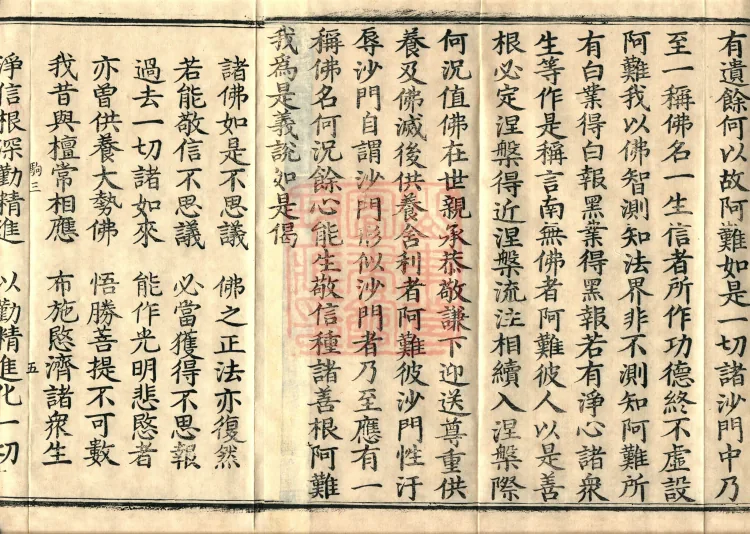 有遺餘何以故阿難如是一切諸沙門中乃
至一稱佛名一生信者所作功德終不虛設
阿難我以佛智測知法界非不測知阿難所
有白業得白報黑業得黑報若有淨心諸衆
生等作是稱言南無佛者阿難彼人以是善
根必定涅槃得近涅槃流注相續入涅槃際
何況值佛在世親承恭敬謙下迎送尊重供
養及佛滅後供養舍利者阿難彼沙門性汙
辱沙門自謂沙門形似沙門者乃至應有一
稱佛名何況餘心能生敬信種諸善根阿難
我為是義說如是偈
諸佛如是不思議　佛之正法亦復然
若能敬信不思議　必當獲得不思報
過去一切諸如來　能作光明悲愍者
亦曾供養大勢佛　悟勝菩提不可數
我昔與檀常相應　布施愍濟諸衆生
駒三　五
淨信根深勤精進　以勤精進化一切